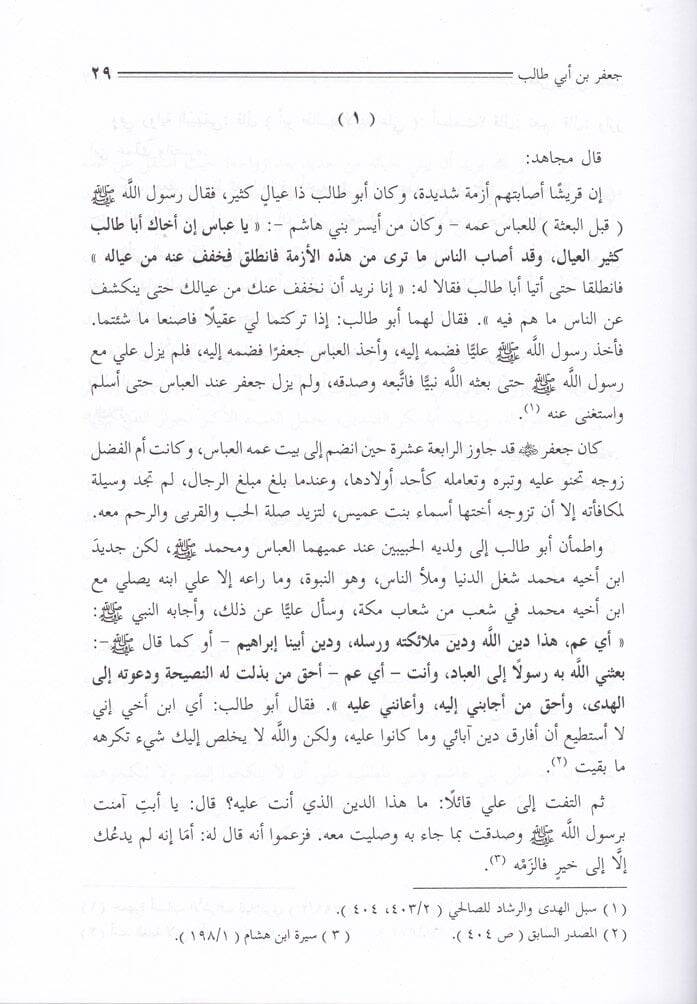 جعفر بن أبي طالب ٢٩
( ١ )
قال مجاهد:
إن قريشًا أصابتهم أزمة شديدة، وكان أبو طالب ذا عيالٍ كثير، فقال رسول اللَّه ﷺ
( قبل البعثة ) للعباس عمه – وكان من أيسر بني هاشم –: « يا عباس إن أخاك أبا طالب
كثير العيال، وقد أصاب الناس ما ترى من هذه الأزمة فانطلق فخفف عنه من عياله »
فانطلقا حتى أتيا أبا طالب فقالا له: « إنا نريد أن نخفف عنك من عيالك حتى ينكشف
عن الناس ما هم فيه ». فقال لهما أبو طالب: إذا تركتما لي عقيلًا فاصنعا ما شئتما.
فأخذ رسول اللَّه ﷺ عليًّا فضمه إليه، وأخذ العباس جعفرًا فضمه إليه، فلم يزل علي مع
رسول اللَّه ﷺ حتى بعثه اللَّه نبيًّا فاتَّبعه وصدقه، ولم يزل جعفر عند العباس حتى أسلم
واستغنى عنه (١).
كان جعفر ﵁ قد جاوز الرابعة عشرة حين انضم إلى بيت عمه العباس، وكانت أم الفضل
زوجه تحنو عليه وتبره وتعامله كأحد أولادها، وعندما بلغ مبلغ الرجال، لم تجد وسيلة
لمكافأته إلا أن تزوجه أختها أسماء بنت عميس، لتزيد صلة الحب والقربى والرحم معه.
واطمأن أبو طالب إلى ولديه الحبيبين عند عميهما العباس ومحمد ﷺ، لكن جديدَ
ابن أخيه محمد شغل الدنيا وملأ الناس، وهو النبوة، وما راعه إلا علي ابنه يصلي مع
ابن أخيه محمد في شعب من شعاب مكة، وسأل عليًّا عن ذلك، وأجابه النبي ﷺ:
« أي عم، هذا دين اللَّه ودين ملائكته ورسله، ودين أبينا إبراهيم – أو كما قال ﷺ –:
بعثني اللَّه به رسولًا إلى العباد، وأنت – أي عم – أحق من بذلت له النصيحة ودعوته إلى
الهدى، وأحق من أجابني إليه، وأعانني عليه ». فقال أبو طالب: أي ابن أخي إني
لا أستطيع أن أفارق دين آبائي وما كانوا عليه، ولكن واللَّه لا يخلص إليك شيء تكرهه
ما بقيت (٢).
ثم التفت إلى علي قائلًا: ما هذا الدين الذي أنت عليه؟ قال: يا أبتِ آمنت
برسول اللَّه ﷺ وصدقت بما جاء به وصليت معه. فزعموا أنه قال له: أمَا إنه لم يدعُك
إلَّا إلى خيرٍ فالزَمْه (٣).
(١) سبل الهدى والرشاد للصالحي ( ٤٠٣/٢، ٤٠٤ ).
(٢) المصدر السابق ( ص ٤٠٤ ). (٣) سيرة ابن هشام ( ١٩٨/١ ).